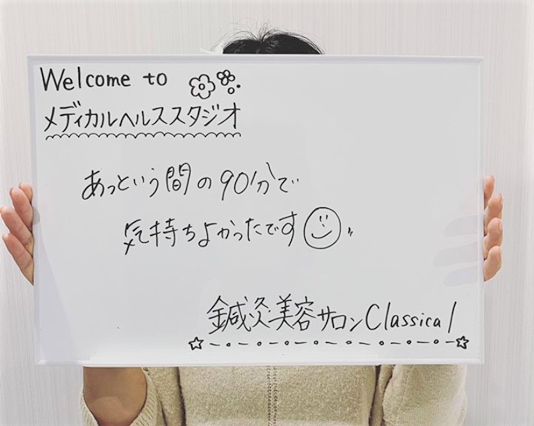 Welcome to
メディカルヘルススタジオ
あっという間の90分で
気持ちよかったです
鍼灸美容サロンClassical